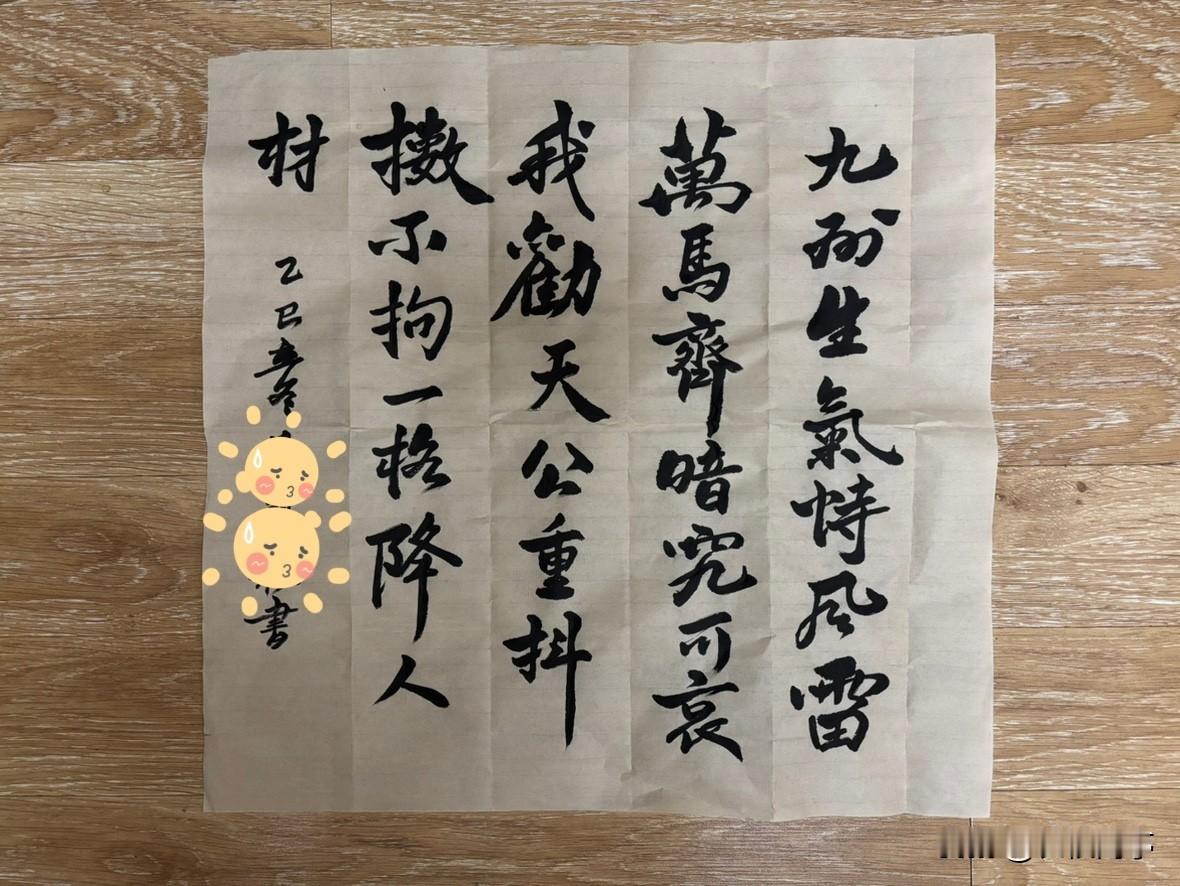 九州生氣恃風雷
萬馬齊喑究可哀
我勸天公重抖
擻不拘一格降人
材
乙巳立冬
書